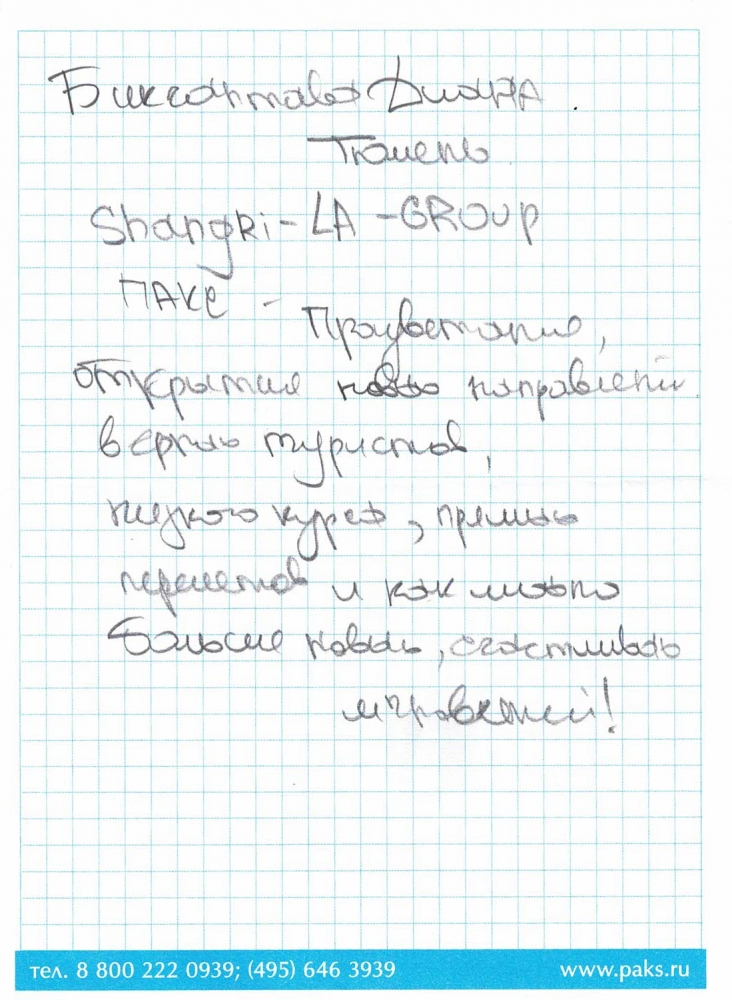 Бикчантаева Диана.
Тюмень
Shangri-LA-GROUP
ПАКС - Процветания,
открытия новых направлений
верных туристов,
низкого курса, прямых
перелетов и как можно
больше новых, счастливых
мгновений!
тел. 8 800 222 0939; (495) 646 3939 www.paks.ru